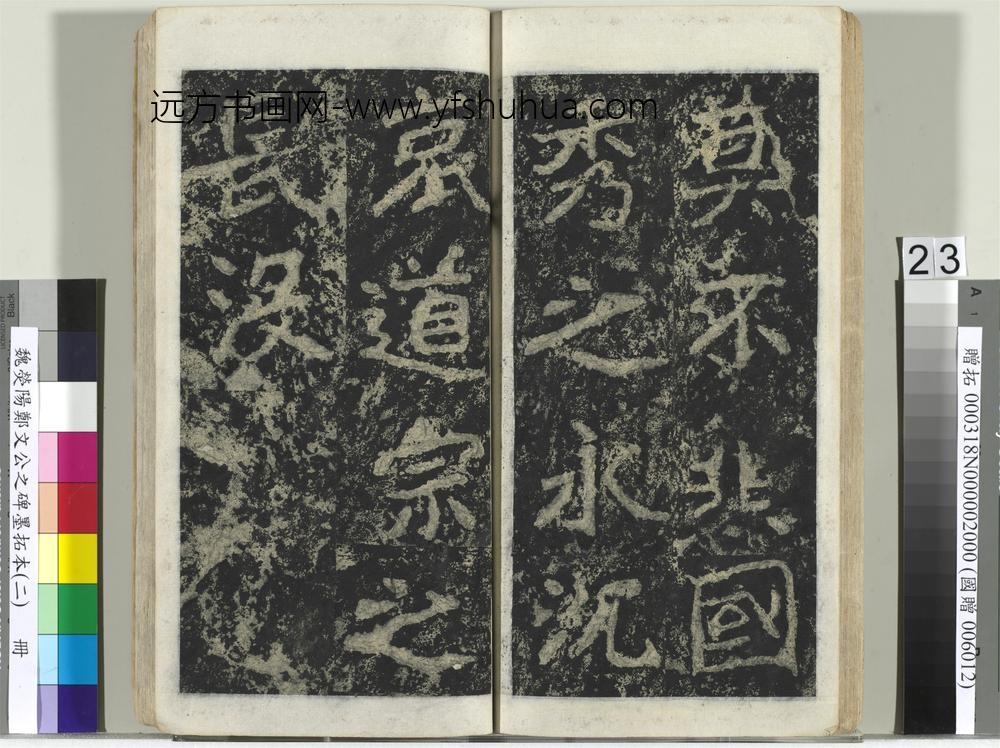 远方书画网-www.yfshuhua.com
莫不悲國
秀之永沉
哀道宗之
長没
23
贈拓 000318N000002000 (國贈 006012)
魏滎陽鄭文公之碑墨拓本(二) 冊
Black
A
1